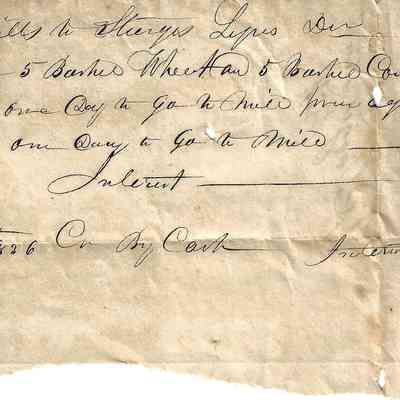 ills to Sturges Dr
5 Bushel Wheet and 5 Bushel Co
one Day to Go to Mill
one Day to Go to Mill
Interest
26 Cr By Cash Inter